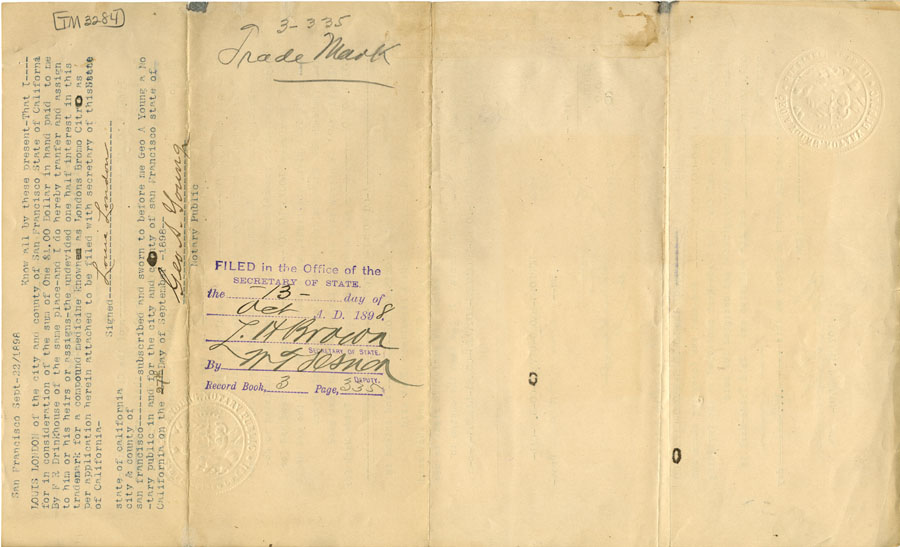 TM 3284
San Francisco Sept-23/1898
Know all by these present-That I----
LOUIS LONDON of the city and county of San Francisco State of California
for in consideration of the sum of One $1.00 Dollar in hand paid to me
By F E Drinkhouse of the same place-and I do hereby tranfer and assign
to him or his heirs or assigns-the undevided one half interest in this
trademark for a compound medicine known as Londons Bromo Citro as
per application herein attached to be filed with secretary of this State
of California-
Signed--Louis London--------
state of california
city & county of
san francisco----------subscribed and sworn to before me Geo A Young a No
-tary public in and for the city and county of san Francisco state of
California on the day of September -1898-
Geo A. Young
Notary Public
3-335
Trade Mark
FILED in the Office of the
SECRETARY OF STATE.
the 13 day of
Oct A. D. 1898.
L. H Brown
SECRETARY OF STATE.
By
DEPUTY.
Record Book, 3 Page, 335